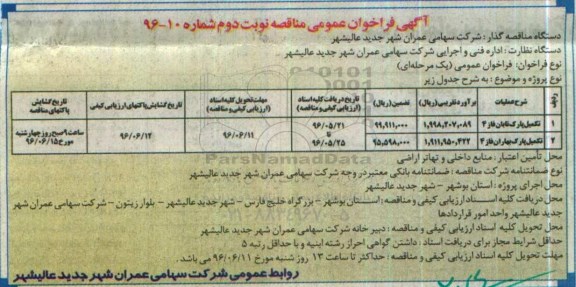 آگهی فراخوان عمومی مناقصه نوبت دوم شماره ۱۰-۹۶
دستگاه مناقصه گذار: شرکت سهامی عمران شهر جدید عالیشهر
دستگاه نظارت: اداره فنی و اجرایی شرکت سهامی عمران شهر جدید عالیشهر
نوع فراخوان: فراخوان عمومی (یک مرحله‌ای)
نوع پروژه و موضوع: به شرح جدول زیر
ردیف شرح عملیات برآورد تقریبی(ریال) تضمین (ریال) تاریخ دریافت کلیه اسناد (ارزیابی کیفی و مناقصه) مهلت تحویل کلیه اسناد (ارزیابی کیفی و مناقصه) تاریخ گشایش پاکتهای ارزیابی کیفی تاریخ گشایش پاکتهای مناقصه
۱ تکمیل پارک تابان فاز ۳ ۱,۹۹۸,۲۰۷,۰۸۹ ۹۹,۹۱۱,۰۰۰ ۹۶/۰۵/۲۱ تا ۹۶/۰۵/۲۵ ۹۶/۰۶/۱۱ ۹۶/۰۶/۱۲ ساعت ۹ صبح روز چهارشنبه مورخ ۹۶/۰۶/۱۵
۲ تکمیل پارک بهاران فاز ۳ ۱,۹۱۱,۹۵۰,۴۲۲ ۹۵,۵۹۸,۰۰۰
محل تأمین اعتبار: منابع داخلی و تهاتر اراضی
نوع ضمانتنامه شرکت مناقصه: ضمانتنامه بانکی معتبر در وجه شرکت سهامی عمران شهر جدید عالیشهر
محل اجرای پروژه: استان بوشهر - شهر جدید عالیشهر
محل دریافت کلیه اسناد ارزیابی کیفی و مناقصه: استان بوشهر - بزرگراه خلیج فارس - شهر جدید عالیشهر - بلوار زیتون - شرکت سهامی عمران شهر
جدید عالیشهر واحد امور قراردادها
محل تحویل کلیه اسناد ارزیابی کیفی و مناقصه: دبیرخانه شرکت سهامی عمران شهر جدید عالیشهر
حداقل شرایط مجاز برای دریافت اسناد: داشتن گواهی احراز رشته ابنیه و با حداقل رتبه ۵
مهلت تحویل کلیه اسناد ارزیابی کیفی و مناقصه: حداکثر تا ساعت ۱۳ روز شنبه مورخ ۹۶/۰۶/۱۱ می باشد.
روابط عمومی شرکت سهامی عمران شهر جدید عالیشهر
ParsNamadData